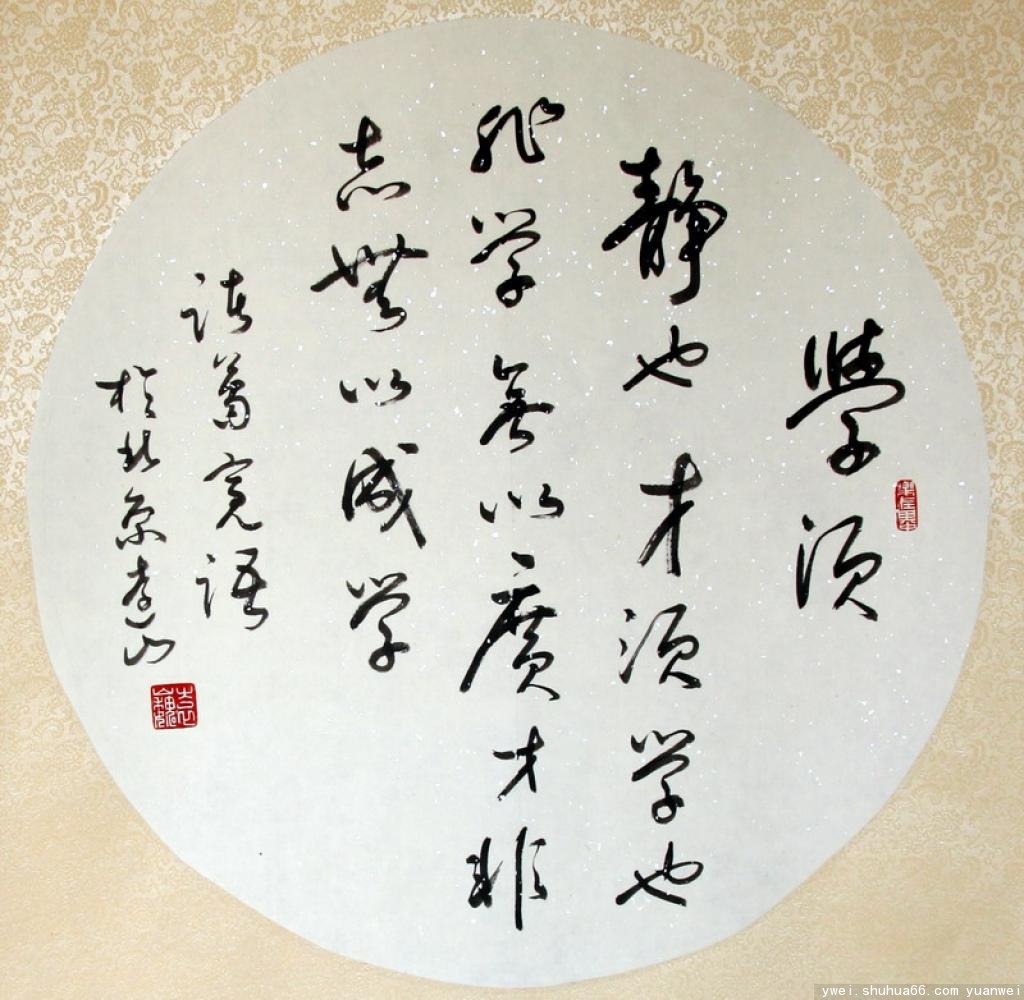 學須
靜也才須學也
非学無以廣才非
志無以成学
諸葛亮語
於北京李山
ywei.shuhua66.com yuanwei